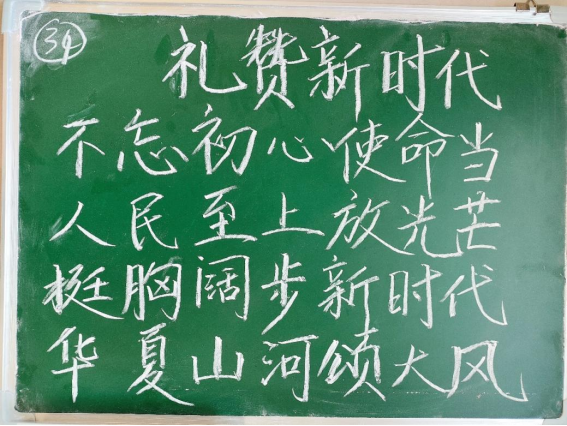 34
礼赞新时代
不忘初心使命当
人民至上放光芒
挺胸阔步新时代
华夏山河颂大风